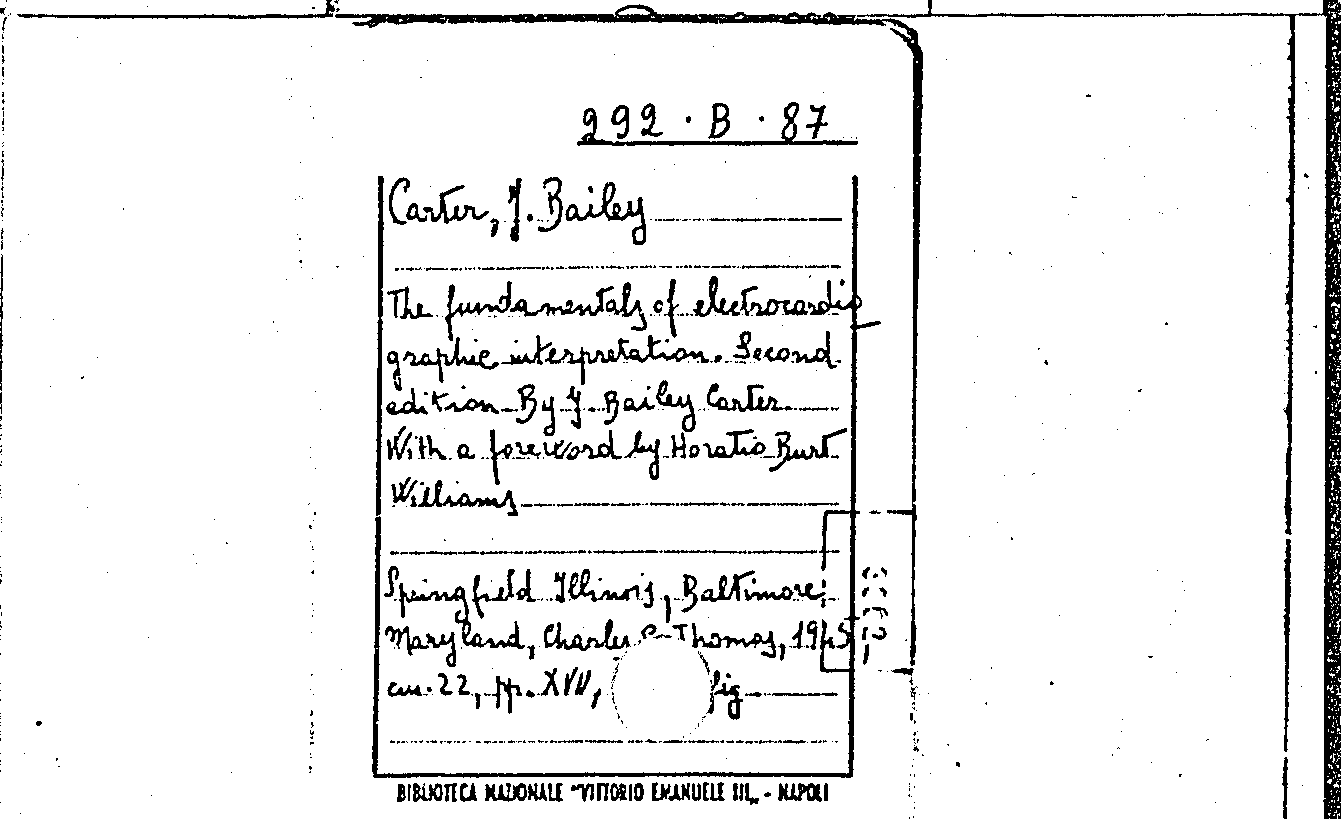 292 · B · 87
Carter, J. Bailey
The fundamentals of electrocardio
graphic interpretation. Second
edition By J. Bailey Carter
With a foreword by Horatio Burt
Williams
Springfield Illinois, Baltimore
Maryland, Charles C. Thomas, 1945
cm. 22, pp. XVII, fig
BIBLIOTECA NAZIONALE "VITTORIO EMANUELE III„ - NAPOLI